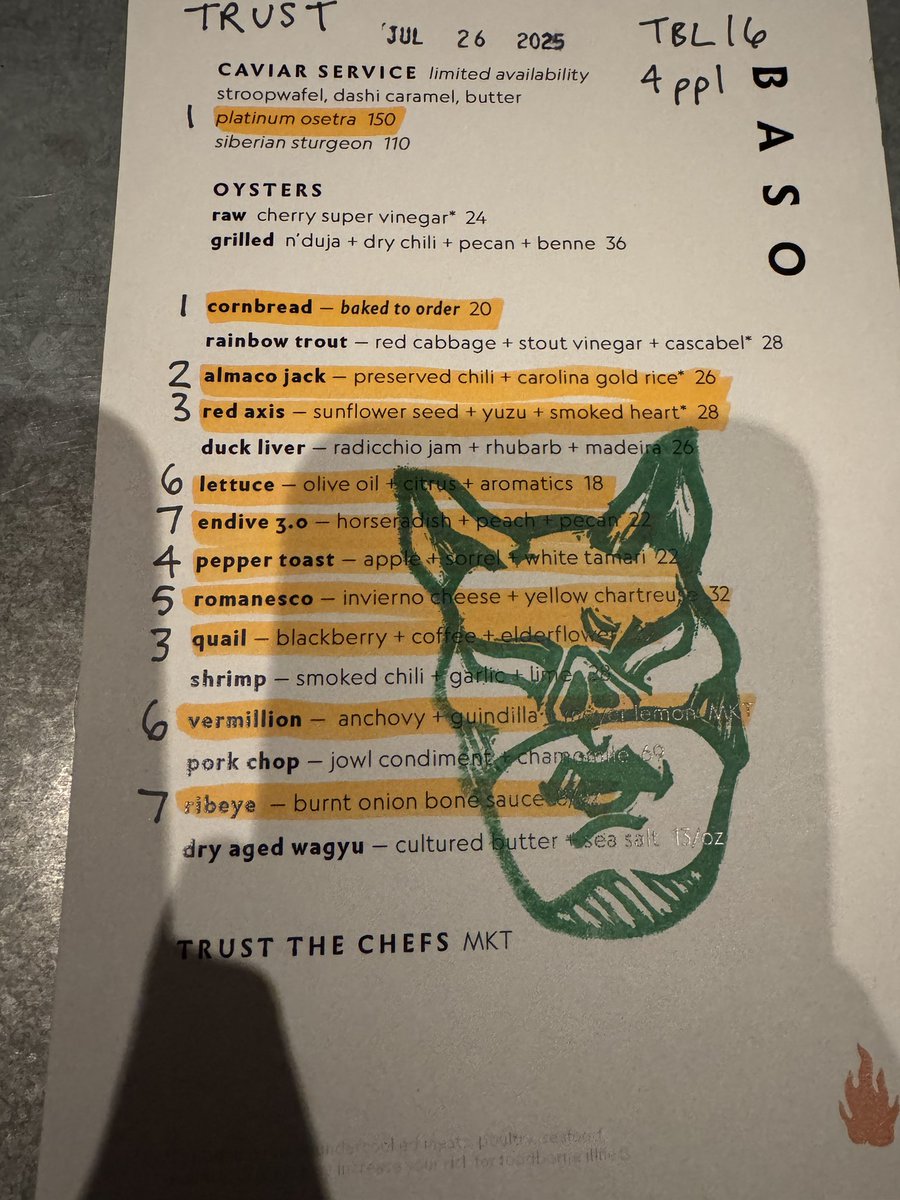 TRUST
JUL 26 2025
TBL 16
4 ppl
BASO
CAVIAR SERVICE limited availability
stroopwafel, dashi caramel, butter
1 platinum osetra 150
siberian sturgeon 110
OYSTERS
raw cherry super vinegar* 24
grilled n'duja + dry chili + pecan + benne 36
1 cornbread – baked to order 20
rainbow trout – red cabbage + stout vinegar + cascabel* 28
2 almaco jack – preserved chili + carolina gold rice* 26
3 red axis – sunflower seed + yuzu + smoked heart* 28
duck liver – radicchio jam + rhubarb + madeira 26
6 lettuce – olive oil + citrus + aromatics 18
7 endive 3.0 – horseradish + peach + pecan 22
4 pepper toast – apple + sorrel + white tamari 22
5 romanesco – invierno cheese + yellow chartreuse 32
3 quail – blackberry + coffee + elderflower
shrimp – smoked chili + garlic + lime 38
6 vermillion – anchovy + guindilla + meyer lemon MKT
pork chop – jowl condiment + chamomile 69
7 ribeye – burnt onion bone sauce
dry aged wagyu – cultured butter + sea salt 15/oz
TRUST THE CHEFS MKT
undercooked meats, poultry, seafood
increase your risk for foodborne illness